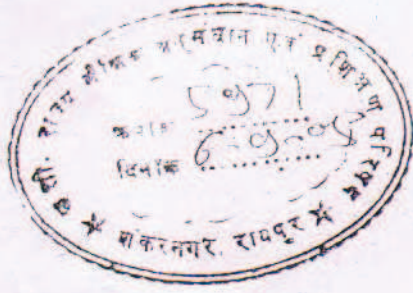 छत्ती. राज्य शैक्षिक अनुसंधान एवं प्रशिक्षण परिषद
क्रमांक 5971
दिनांक 6-9-05
★ शंकरनगर, रायपुर ★